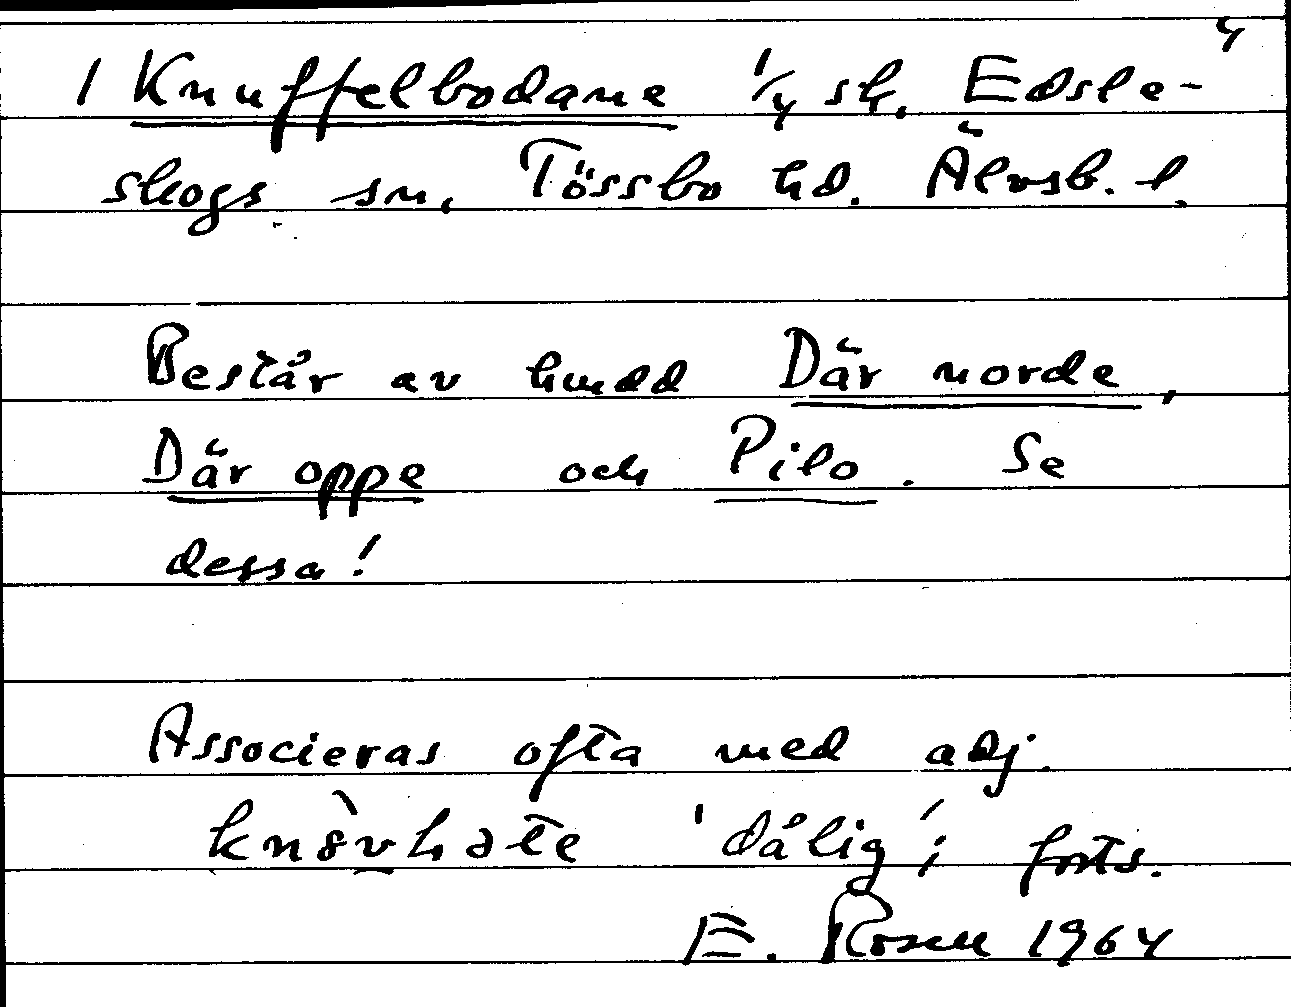 4
1 Knuffelbodane 1/4 sk. Edsle-
skogs sn. Tössbo hd. Älvsb. l.
Består av hmdd Där norde,
Där oppe och Pilo. Se
dessa!
Associeras ofta med adj.
'dålig'; forts.
E. Rosell 1964